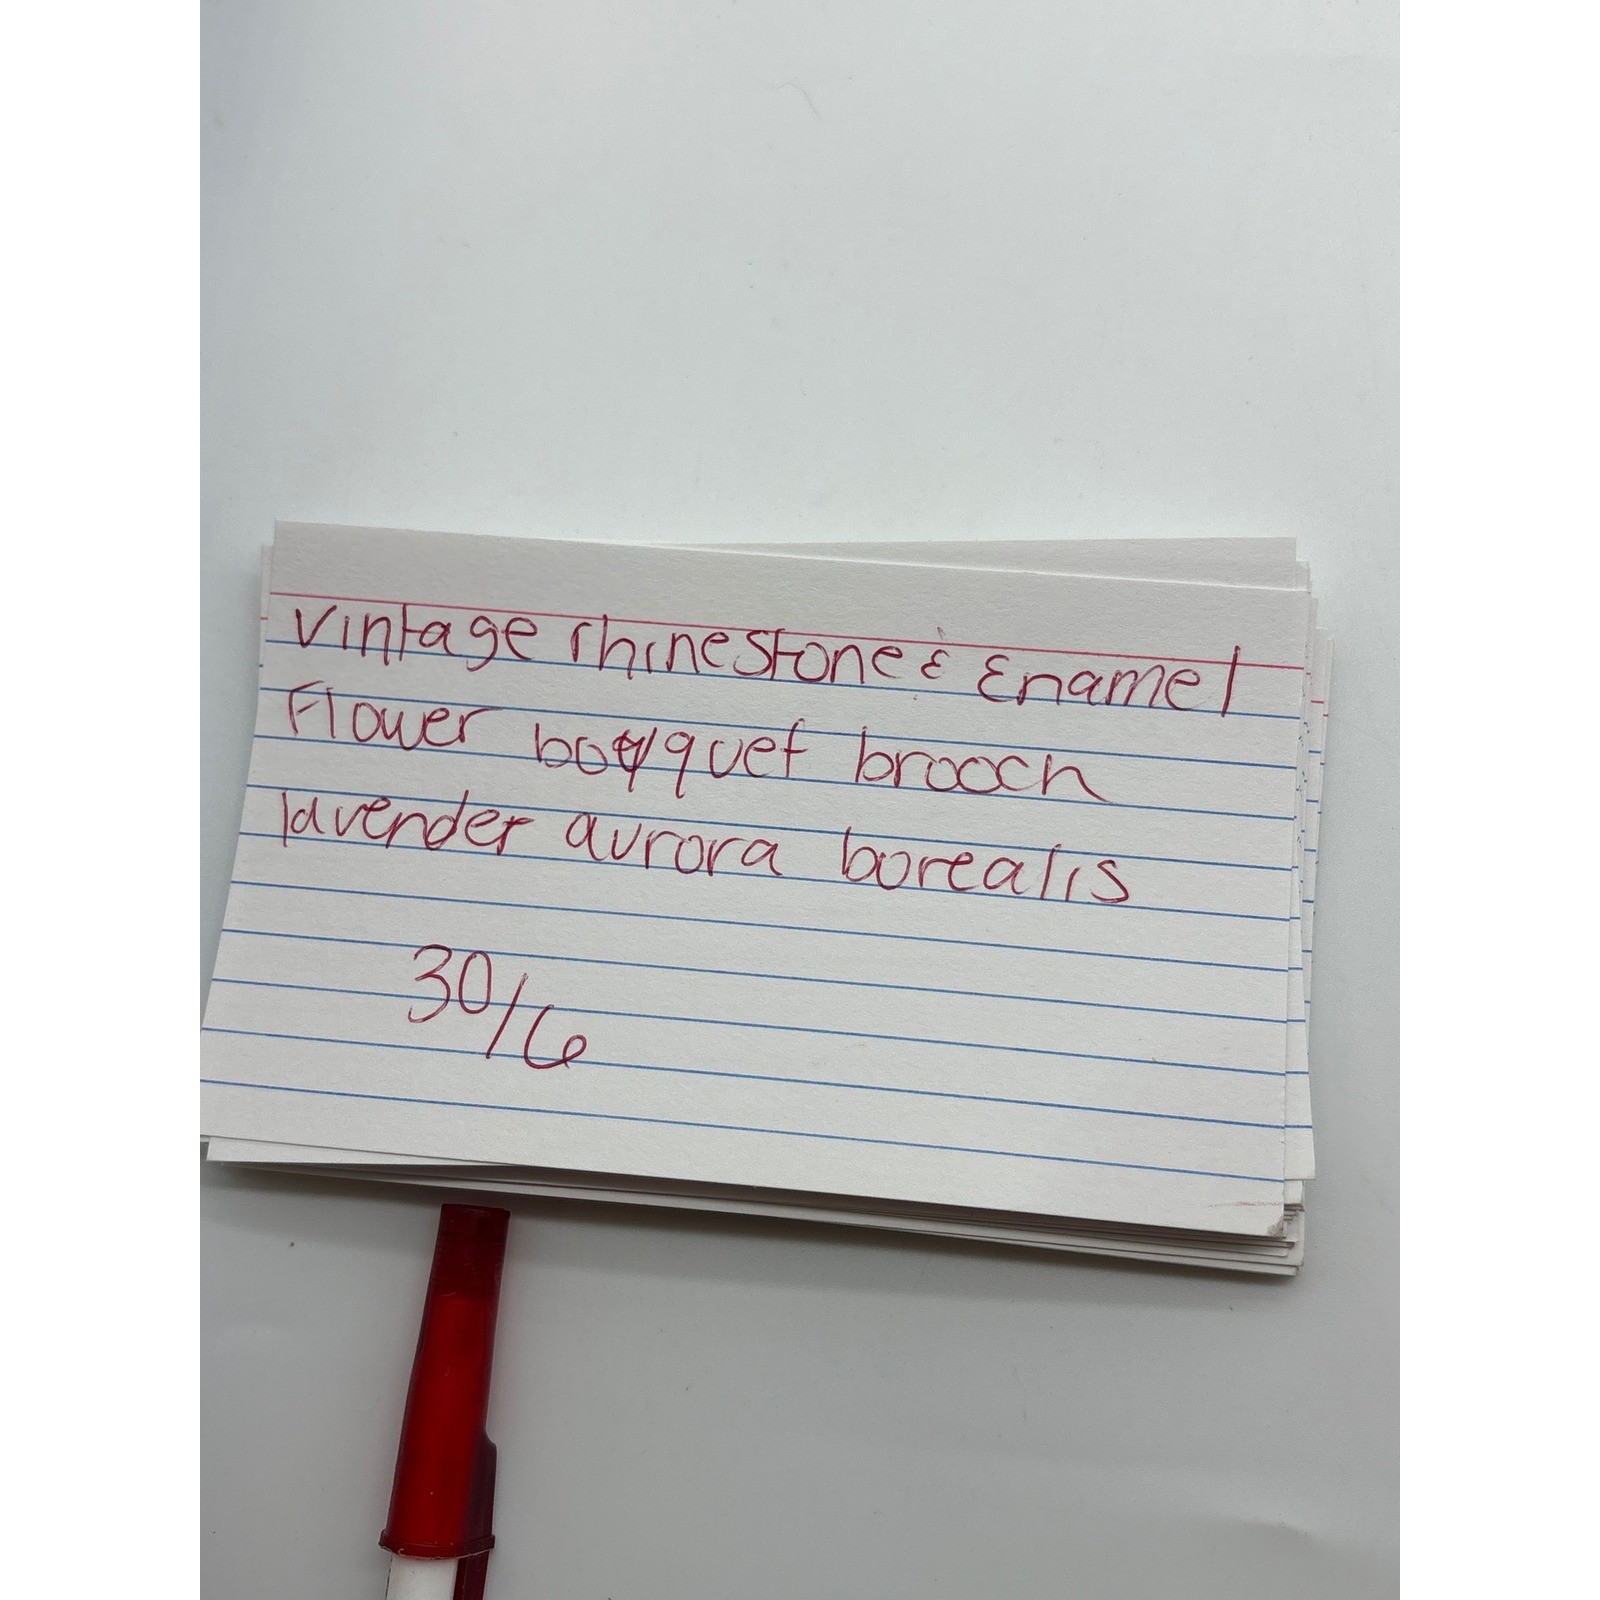 Vintage rhinestone & Enamel
Flower bouquet brooch
lavender aurora borealis
30/6